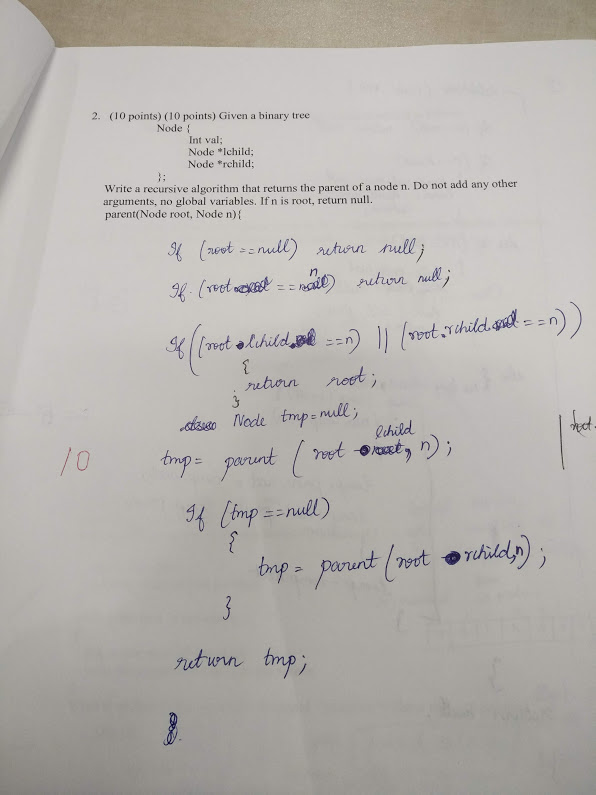 2. (10 points) (10 points) Given a binary tree
Node {
Int val;
Node *lchild;
Node *rchild;
};
Write a recursive algorithm that returns the parent of a node n. Do not add any other
arguments, no global variables. If n is root, return null.
parent(Node root, Node n){
If (root == null) return null;
If (root == n) return null;
If ((root.lchild == n) || (root.rchild == n))
{
return root;
}
Node tmp = null;
tmp = parent (root . lchild, n);
10
If (tmp == null)
{
tmp = parent (root . rchild, n);
}
return tmp;